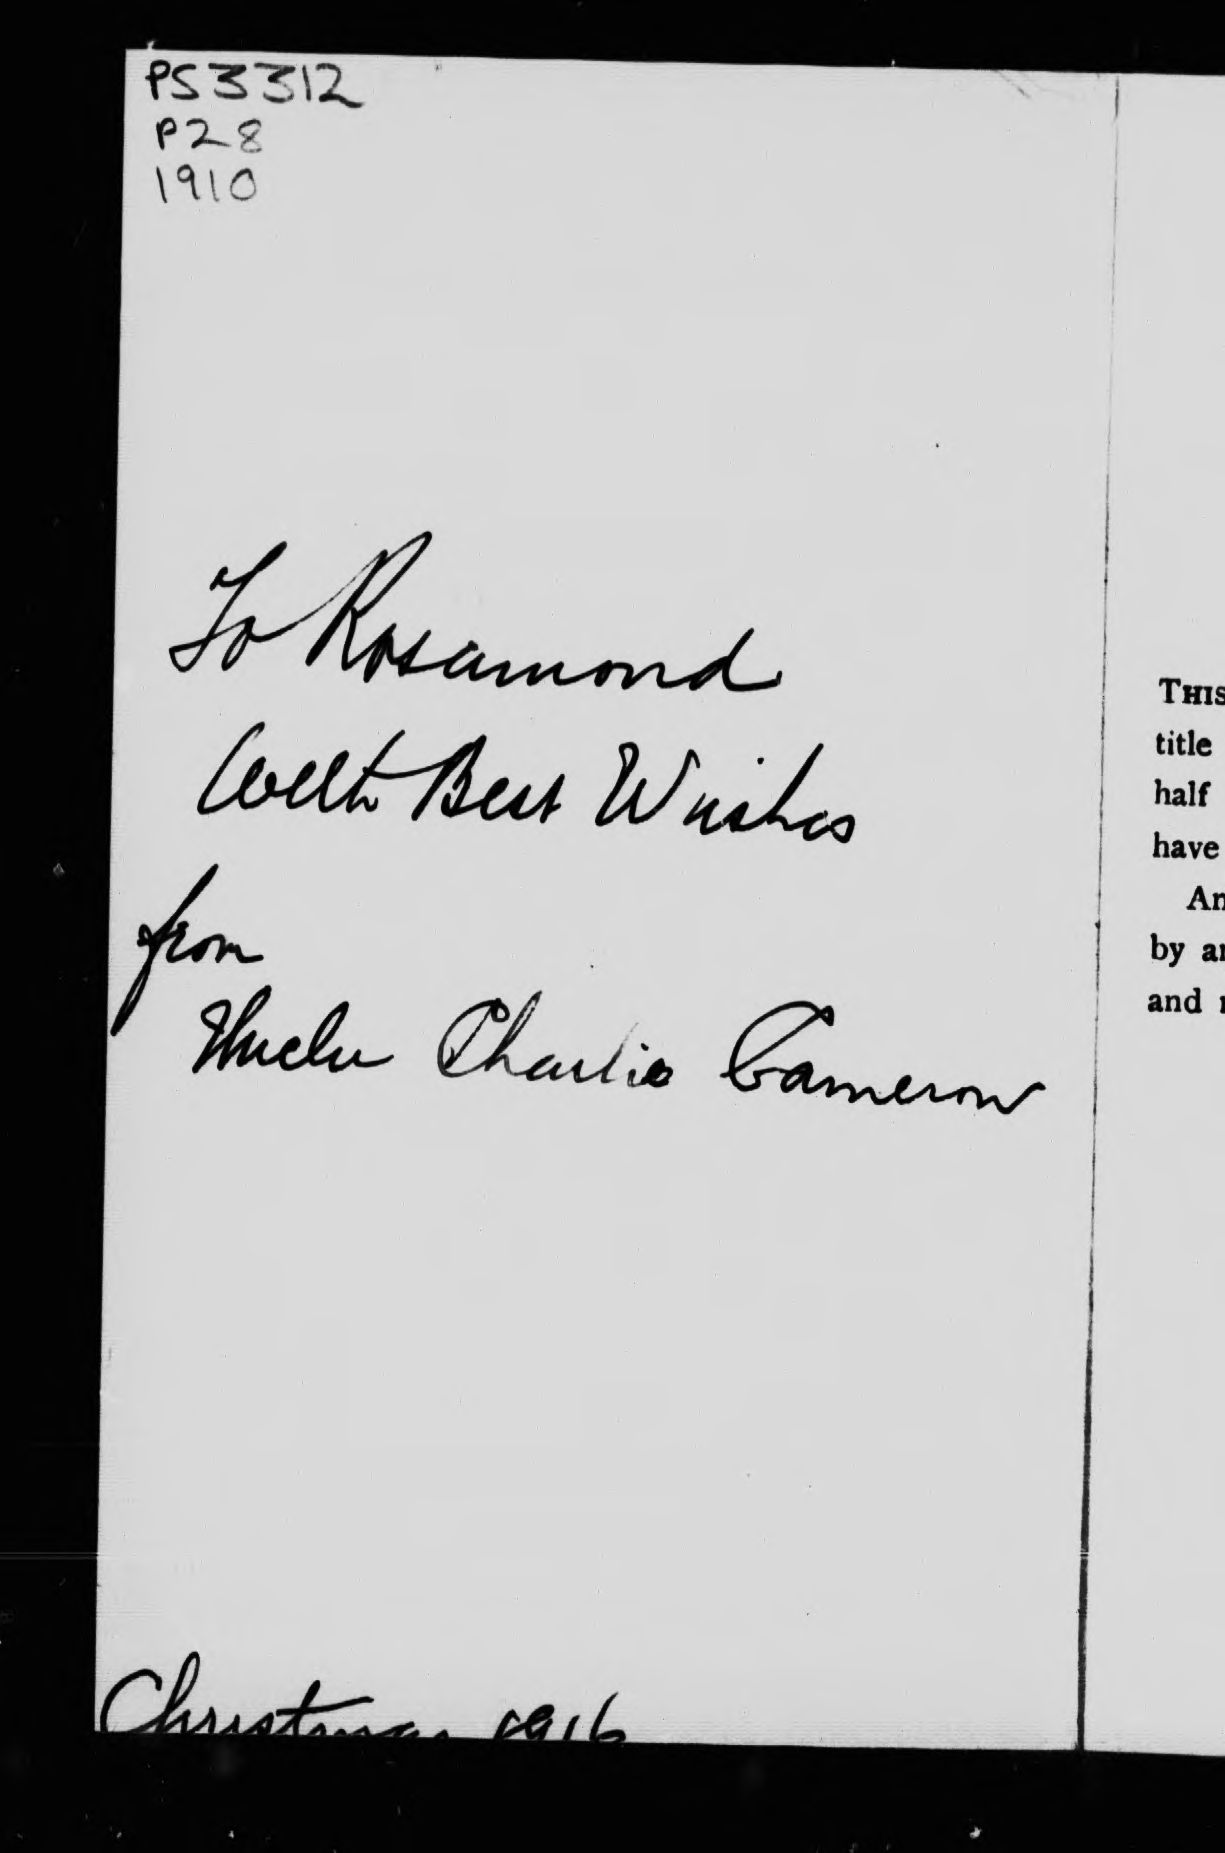 PS3312
P28
1910
To Rosamond
With Best Wishes
from
Uncle Charlie Cameron
Christmas 1916
THIS
title
half
have
An
by an
and